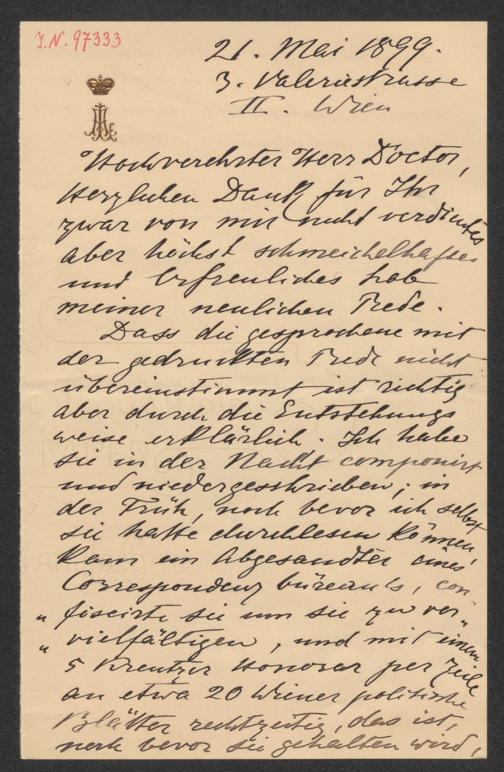 I.N. 97333
21. Mai 1899.
3. Valeriestrasse
II. Wien
Hochverehrter Herr Doctor,
Herzlichen Dank für Ihr
zwar von mir nicht verdientes
aber höchst schmeichelhaftes
und Erfreuliches Lob
meiner neulichen Rede.
Dass die gesprochene mit
der gedruckten Rede nicht
übereinstimmt ist richtig
aber durch die Entstehungs
weise erklärlich. Ich habe
sie in der Nacht componirt
und niedergeschrieben; in
der Früh, noch bevor ich selbst
sie hatte durchlesen können,
kam ein Abgesandter eines
Correspondenz büreau's, con
„ fiscirte sie um sie zu ver„
„ vielfältigen, und mit einem
5 Kreutzer Honorar per Zeile
an etwa 20 Wiener politische
Blätter rechtzeitig, das ist,
noch bevor sie gehalten wird,